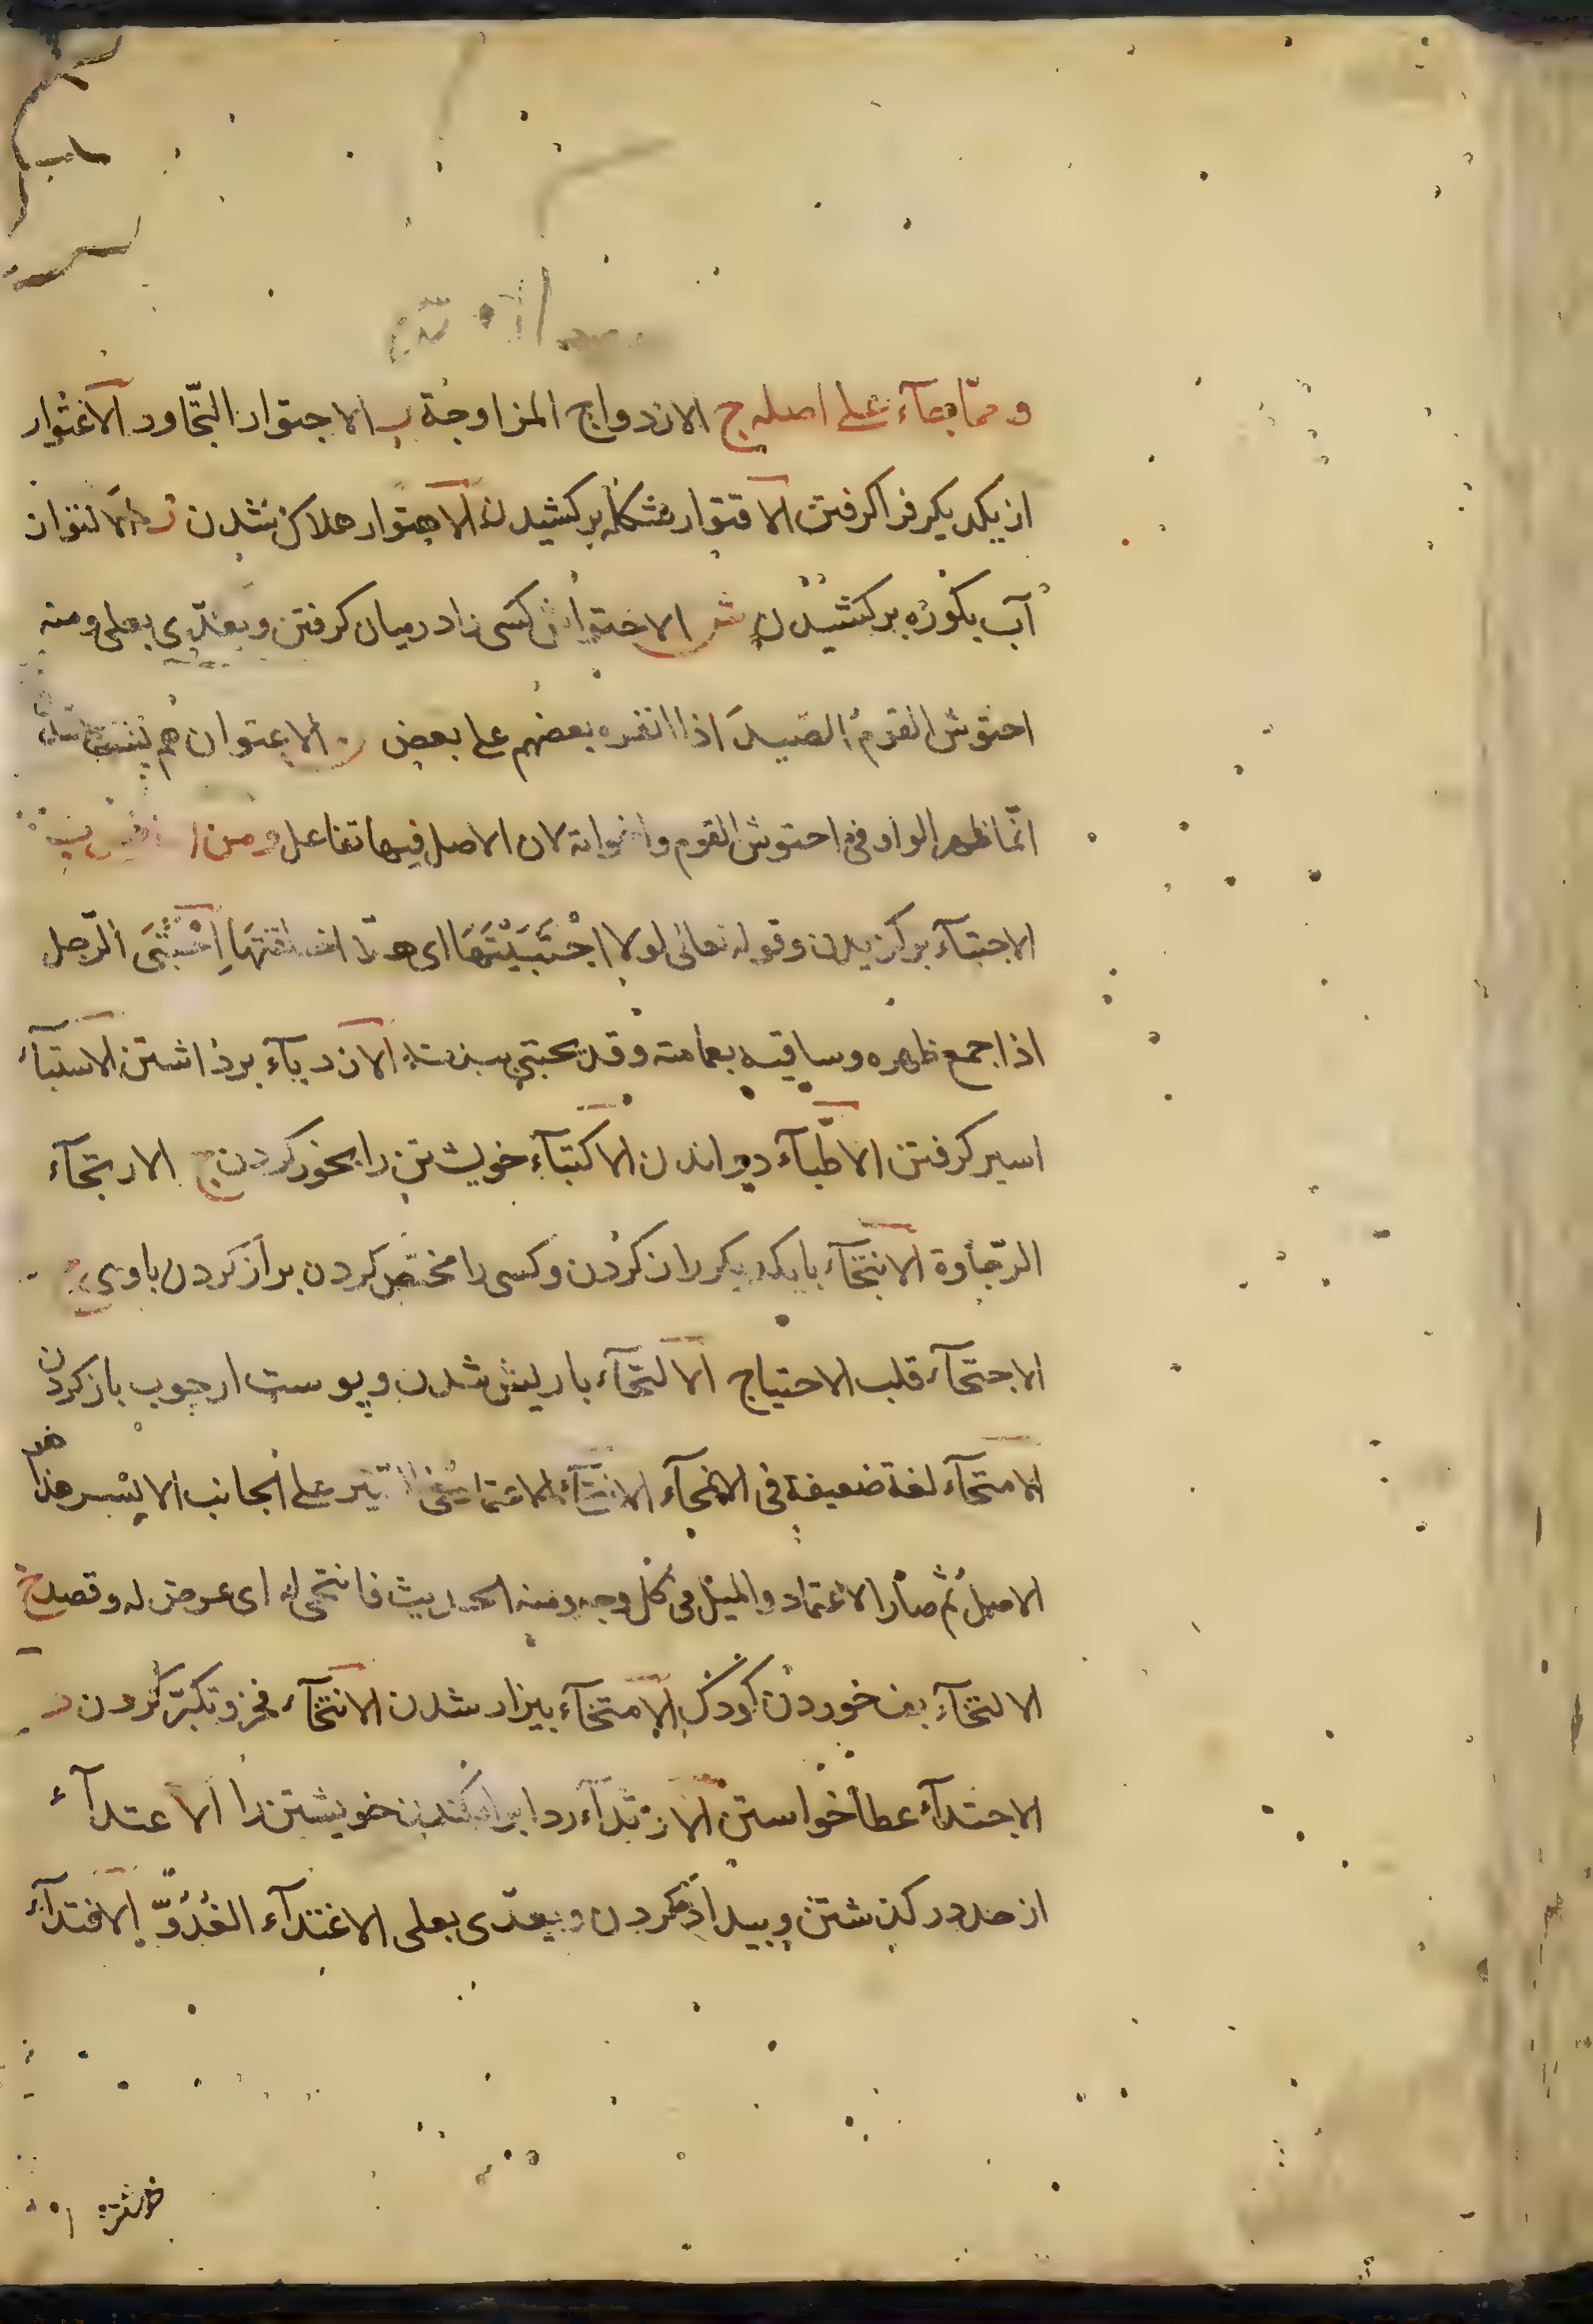 ومما جاء على اصله ج الازدواج المزاوجة ر الاجتوار التجاور الاعتوار
از یکدیکر فرا کرفتن الاقتوار مشکله برکشیدن الاهتوار هلاک شدن
آب بکوزه برکشیدن ش الاحتواش کسی را درمیان کرفتن ویعدّی بعلی ومنه
احتوش القومُ الصیدَ اذا انفره بعضهم علی بعض ن الاعتوان هم پشت شدن
انّما ظهر الواو فی احتوش القوم واخواته لان الاصل فیها تفاعل ومن
الاجتبآء برکزیدن وقوله تعالی لولا اجْتَبَیْتَهَا ای هلّا اختلقتَهَا اِحْتَبَی الرّجل
اذا جمع ظهره وساقیه بعمامته وقد یحتبی بیدیه الازدبآء برداشتن الاستبآء
اسیر کرفتن الاطّبآء دواندن الاکتبآء خویشتن را بخور کردن ج الارتجآء
الرّجاوة الانتجآء بایکدیکر راز کردن وکسی را مختص کردن براز کردن باوی
الاجتحآء قلب الاحتیاج الالتحآء باریش شدن وپوست ازچوب باز کردن
الامتحآء لغة ضعیفة فی الامحآء الانتحآء الاعتماد فی السیر علی الجانب الایسر هذا هو
الاصل ثم صار الاعتماد والمیل فی کل وجه ومنه الحدیث فانتحی له ای عرض له وقصد خ
الالتخآء خوردن کودک الامتخآء بیزار شدن الانتخآء فخر وتکبّر کردن د
الاجتدآء عطا خواستن الارتدآء ردا برافکندن خویشتن را الاعتدآء
از حد در کذشتن وبیداد کردن ویعدّی بعلی الاغتدآء الغُدُوّ الافتدآء
خویشتن